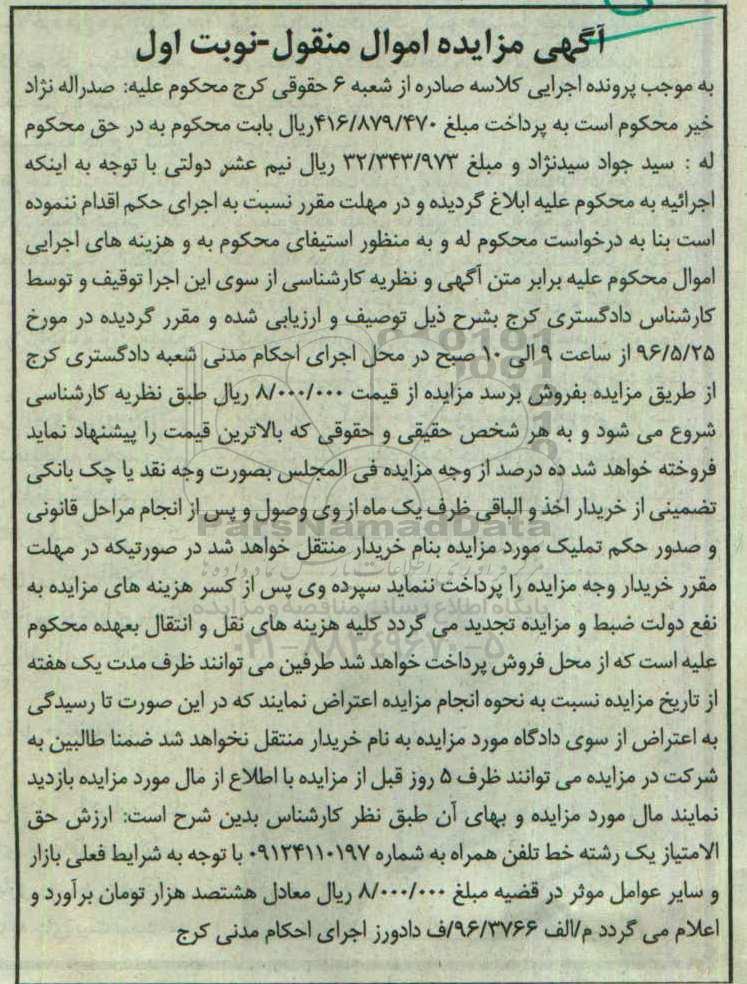 آگهی مزایده اموال منقول-نوبت اول
به موجب پرونده اجرایی کلاسه صادره از شعبه ۶ حقوقی کرج محکوم علیه: صدراله نژاد
خیر محکوم است به پرداخت مبلغ ۴۱۶/۸۷۹/۴۷۰ریال بابت محکوم به در حق محکوم
له : سید جواد سیدنژاد و مبلغ ۳۲/۳۴۳/۹۷۳ ریال نیم عشر دولتی با توجه به اینکه
اجرائیه به محکوم علیه ابلاغ گردیده و در مهلت مقرر نسبت به اجرای حکم اقدام ننموده
است بنا به درخواست محکوم له و به منظور استیفای محکوم به و هزینه های اجرایی
اموال محکوم علیه برابر متن آگهی و نظریه کارشناسی از سوی این اجرا توقیف و توسط
کارشناس دادگستری کرج بشرح ذیل توصیف و ارزیابی شده و مقرر گردیده در مورخ
۹۶/۵/۲۵ از ساعت ۹ الی ۱۰ صبح در محل اجرای احکام مدنی شعبه دادگستری کرج
از طریق مزایده بفروش برسد مزایده از قیمت ۸/۰۰۰/۰۰۰ ریال طبق نظریه کارشناسی
شروع می شود و به هر شخص حقیقی و حقوقی که بالاترین قیمت را پیشنهاد نماید
فروخته خواهد شد ده درصد از وجه مزایده فی المجلس بصورت وجه نقد یا چک بانکی
تضمینی از خریدار اخذ و الباقی ظرف یک ماه از وی وصول و پس از انجام مراحل قانونی
و صدور حکم تملیک مورد مزایده بنام خریدار منتقل خواهد شد در صورتیکه در مهلت
مقرر خریدار وجه مزایده را پرداخت ننماید سپرده وی پس از کسر هزینه های مزایده به
نفع دولت ضبط و مزایده تجدید می گردد کلیه هزینه های نقل و انتقال بعهده محکوم
علیه است که از محل فروش پرداخت خواهد شد طرفین می توانند ظرف مدت یک هفته
از تاریخ مزایده نسبت به نحوه انجام مزایده اعتراض نمایند که در این صورت تا رسیدگی
به اعتراض از سوی دادگاه مورد مزایده به نام خریدار منتقل نخواهد شد ضمنا طالبین به
شرکت در مزایده می توانند ظرف ۵ روز قبل از مزایده با اطلاع از مال مورد مزایده بازدید
نمایند مال مورد مزایده و بهای آن طبق نظر کارشناس بدین شرح است: ارزش حق
الامتیاز یک رشته خط تلفن همراه به شماره ۰۹۱۲۴۱۱۰۱۹۷ با توجه به شرایط فعلی بازار
و سایر عوامل موثر در قضیه مبلغ ۸/۰۰۰/۰۰۰ ریال معادل هشتصد هزار تومان برآورد و
اعلام می گردد م/الف ۹۶/۳۷۶۶/ف دادورز اجرای احکام مدنی کرج
ParsNamadData
پایگاه اطلاع رسانی مناقصه و مزایده